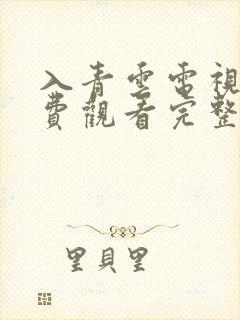 入青雲電視
費觀看完整
里貝里